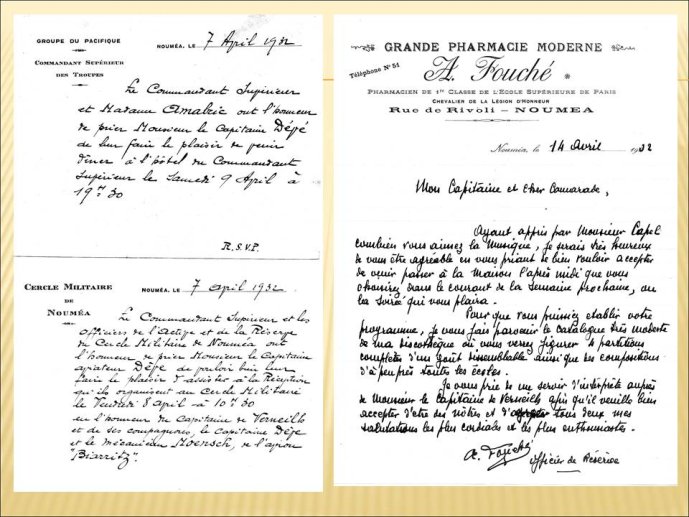 GROUPE DU PACIFIQUE
COMMANDANT SUPÉRIEUR
DES TROUPES
NOUMÉA, LE 7 April 1932
Le Commandant Supérieur
et Madame Amalric ont l'honneur
de prier Monsieur le Capitaine Dépé
de leur faire le plaisir de venir
dîner à l'hôtel du Commandant
Supérieur le Samedi 9 April à
19h30
R.S.V.P.
CERCLE MILITAIRE
DE
NOUMÉA
NOUMÉA, LE 7 april 1932.
Le Commandant Supérieur et les
officiers de l'Active et de la Réserve
du Cercle Militaire de Nouméa ont
l'honneur de prier Monsieur le Capitaine
aviateur Dépé de vouloir bien leur
faire le plaisir d'assister à la Réception
qu'ils organisent au Cercle Militaire
le Vendredi 8 April à 10h30
en l'honneur du Capitaine de Verneilh
et de ses compagnons, le Capitaine Dépé
et le mécanicien Moensch, de l'avion
"Biarritz".
GRANDE PHARMACIE MODERNE
Téléphone N° 51
A. Fouché
PHARMACIEN DE 1re CLASSE DE L'ÉCOLE SUPÉRIEURE DE PARIS
CHEVALIER DE LA LÉGION D'HONNEUR
Rue de Rivoli - NOUMÉA
Nouméa, le 14 Avril 1932
Mon Capitaine et Cher Camarade,
Ayant appris par Monsieur Capel
combien vous aimez la Musique, je serais très heureux
de vous être agréable en vous priant de bien vouloir accepter
de venir passer à la Maison l'après midi que vous
choisirez dans le courant de la Semaine prochaine, ou
la Soirée qui vous plaira.
Pour que vous puissiez établir votre
programme, je vous fais parvenir le Catalogue très modeste
de ma Discothèque où vous verrez figurer 4 partitions
complètes d'un goût dissemblable ainsi que des compositions
d'à peu près toutes les écoles.
Je vous prie de me servir d'interprète auprès
de Monsieur le Capitaine de Verneilh afin qu'il veuille bien
accepter d'être des nôtres et d'agréer tous deux mes
salutations les plus cordiales et les plus enthousiastes.
A. Fouché
Officier de Réserve